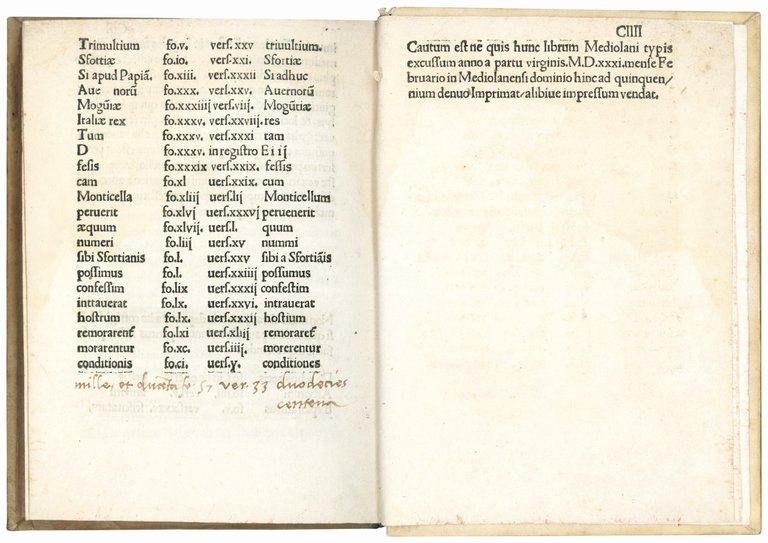 Trimultium fo.v. vers.xxv triuultium.
Sfottiæ fo.io. vers.xxi. Sfortiæ
Si apud Papiā. fo.xiii. vers.xxxii Si adhuc
Aue norū fo.xxx. vers.xxv. Auernorū
Mogūiæ fo.xxxiiij vers.viij. Mogūtiæ
Italiæ rex fo.xxxv. vers.xxviij. res
Tum fo.xxxv. vers.xxxi tam
D fo.xxxv. in registro E i i j
fesis fo.xxxix vers.xxix. fessis
cam fo.xl uers.xxix. cum
Monticella fo.xliij uers.lij Monticellum
peruerit fo.xlvj uers.xxxvj peruenerit
æquum fo.xlvij. uers.l. quum
numeri fo.liij uers.xv nummi
sibi Sfortianis fo.l. uers.xxv sibi a Sfortiāis
possimus fo.l. uers.xxiiij possumus
confessim fo.lix uers.xxxij confestim
intrauerat fo.lx. uers.xxvi. intrauerat
hostrum fo.lx. uers.xxxij hostium
remorarent̄ fo.lxi uers.xliij remoraret̄
morarentur fo.xc. uers.iiij. morerentur
conditionis fo.ci. uers.y. conditiones
mille, et ducēta fo 57 ver. 33 duodecies
centena
CIIII
Cautum est nē quis hunc librum Mediolani typis
excussum anno a partu virginis.M.D.xxxi.mense Fe
bruario in Mediolanensi dominio hinc ad quinquen/
nium denuo Imprimat, alibiue impressum vendat.